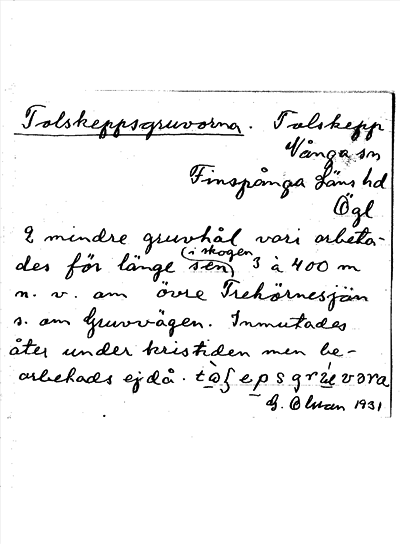 Tolskeppsgruvorna. Tolskepp
Vånga sn
Finspånga Läns hd
Ögl
2 mindre gruvhål vari arbeta-
des för länge sen (i skogen) 3 à 400 m
n. v. om övre Trehörnesjön
s. om Gruvvägen. Inmutades
åter under kristiden men be-
arbetades ej då.
G. Olson 1931